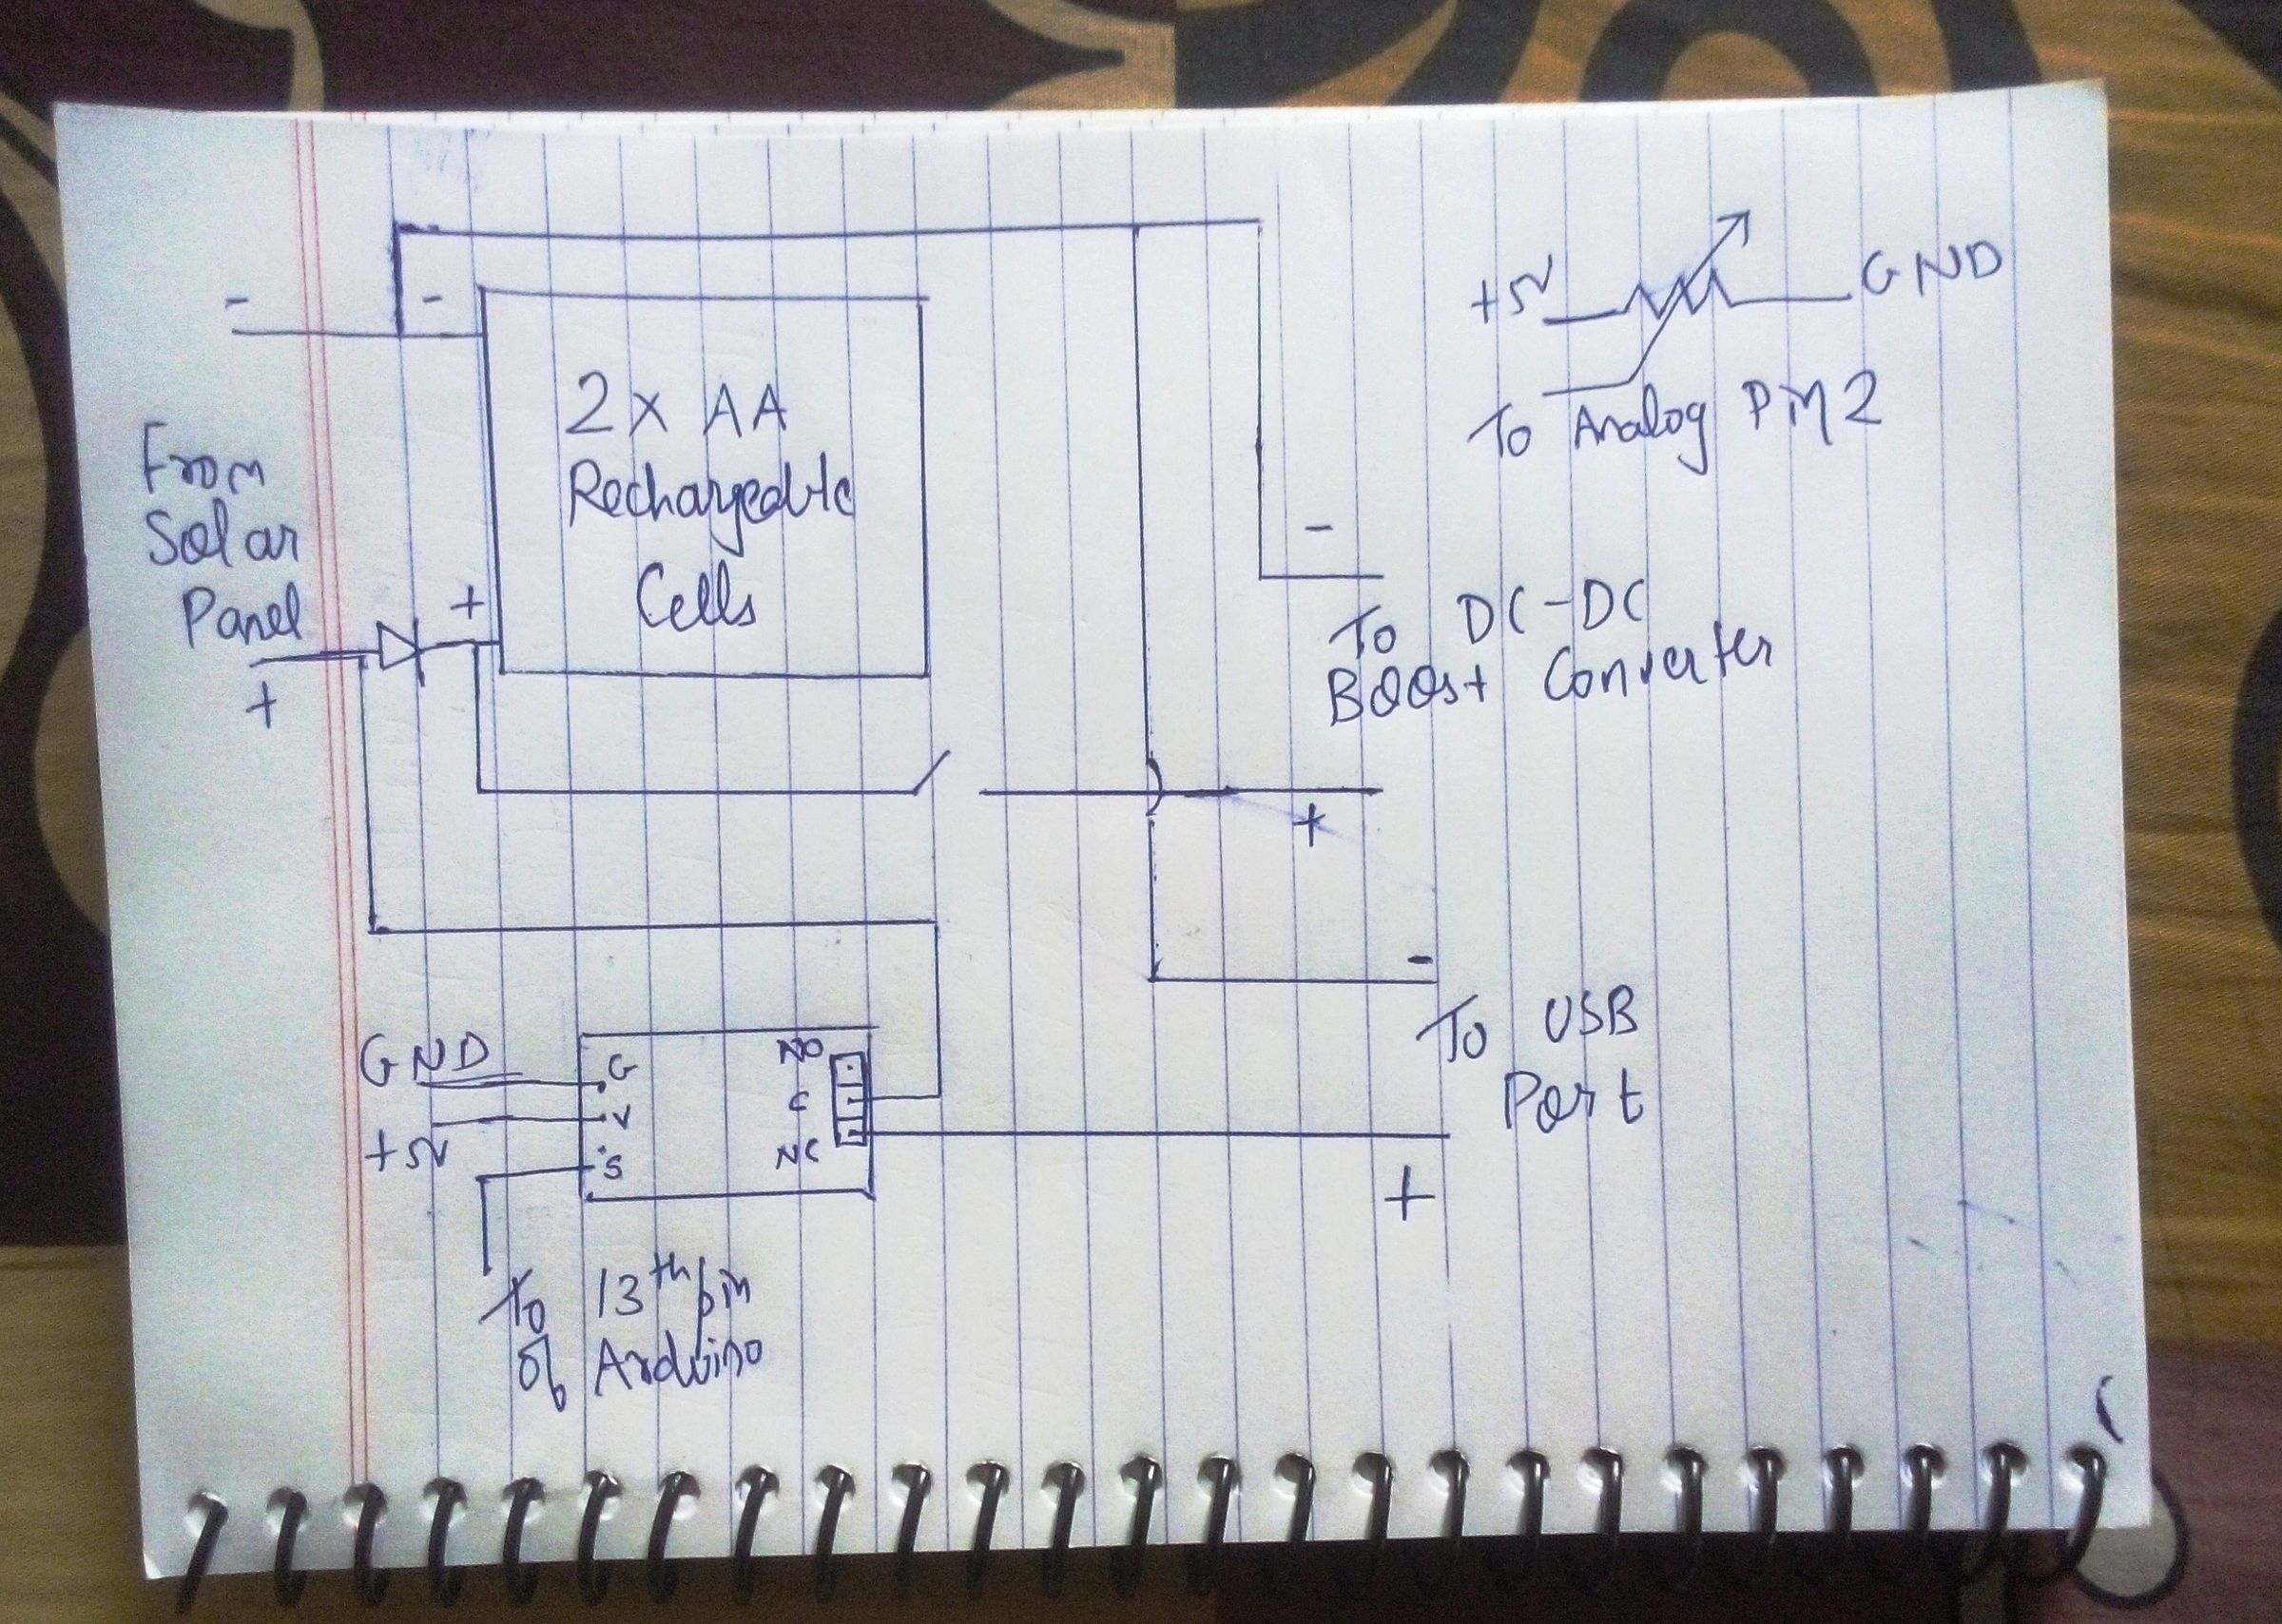 -
-
2 x AA
Rechargeable
Cells
From
Solar
Panel
+
+
+5V
GND
To Analog Pin 2
-
To DC-DC
Boost Converter
+
-
To USB
Port
+
GND
+5V
G
V
S
NO
C
NC
To 13th pin
of Arduino